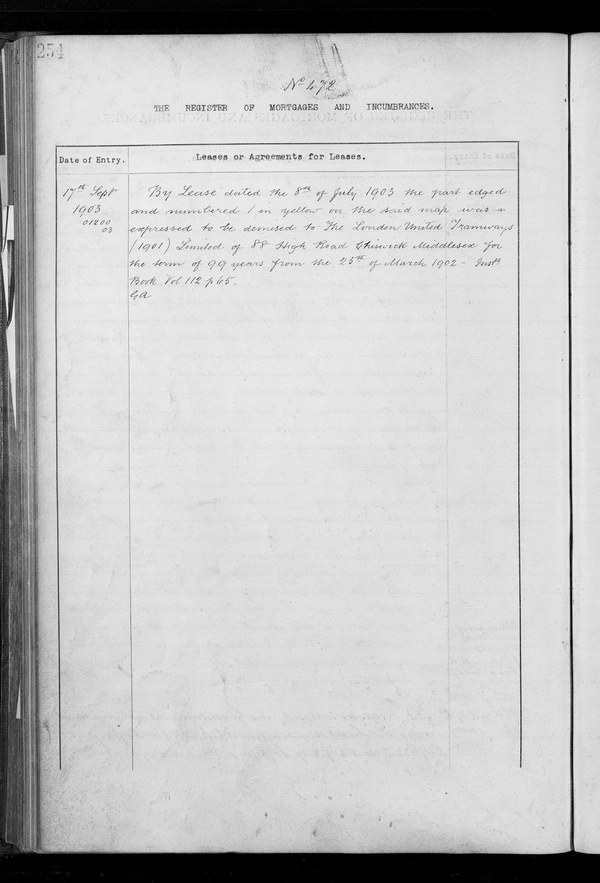 254
No 472
THE REGISTER OF MORTGAGES AND INCUMBRANCES.
Date of Entry.
Leases or Agreements for Leases.
17th Sept
1903
01200
03
By Lease dated the 8th of July 1903 the part edged
and numbered 1 in yellow on the said map was
expressed to be demised to The London United Tramways
(1901) Limited of 88 High Road Chiswick Middlesex for
the term of 99 years from the 25th of March 1902 - Insts
Book Vol 112 p 65.
GA